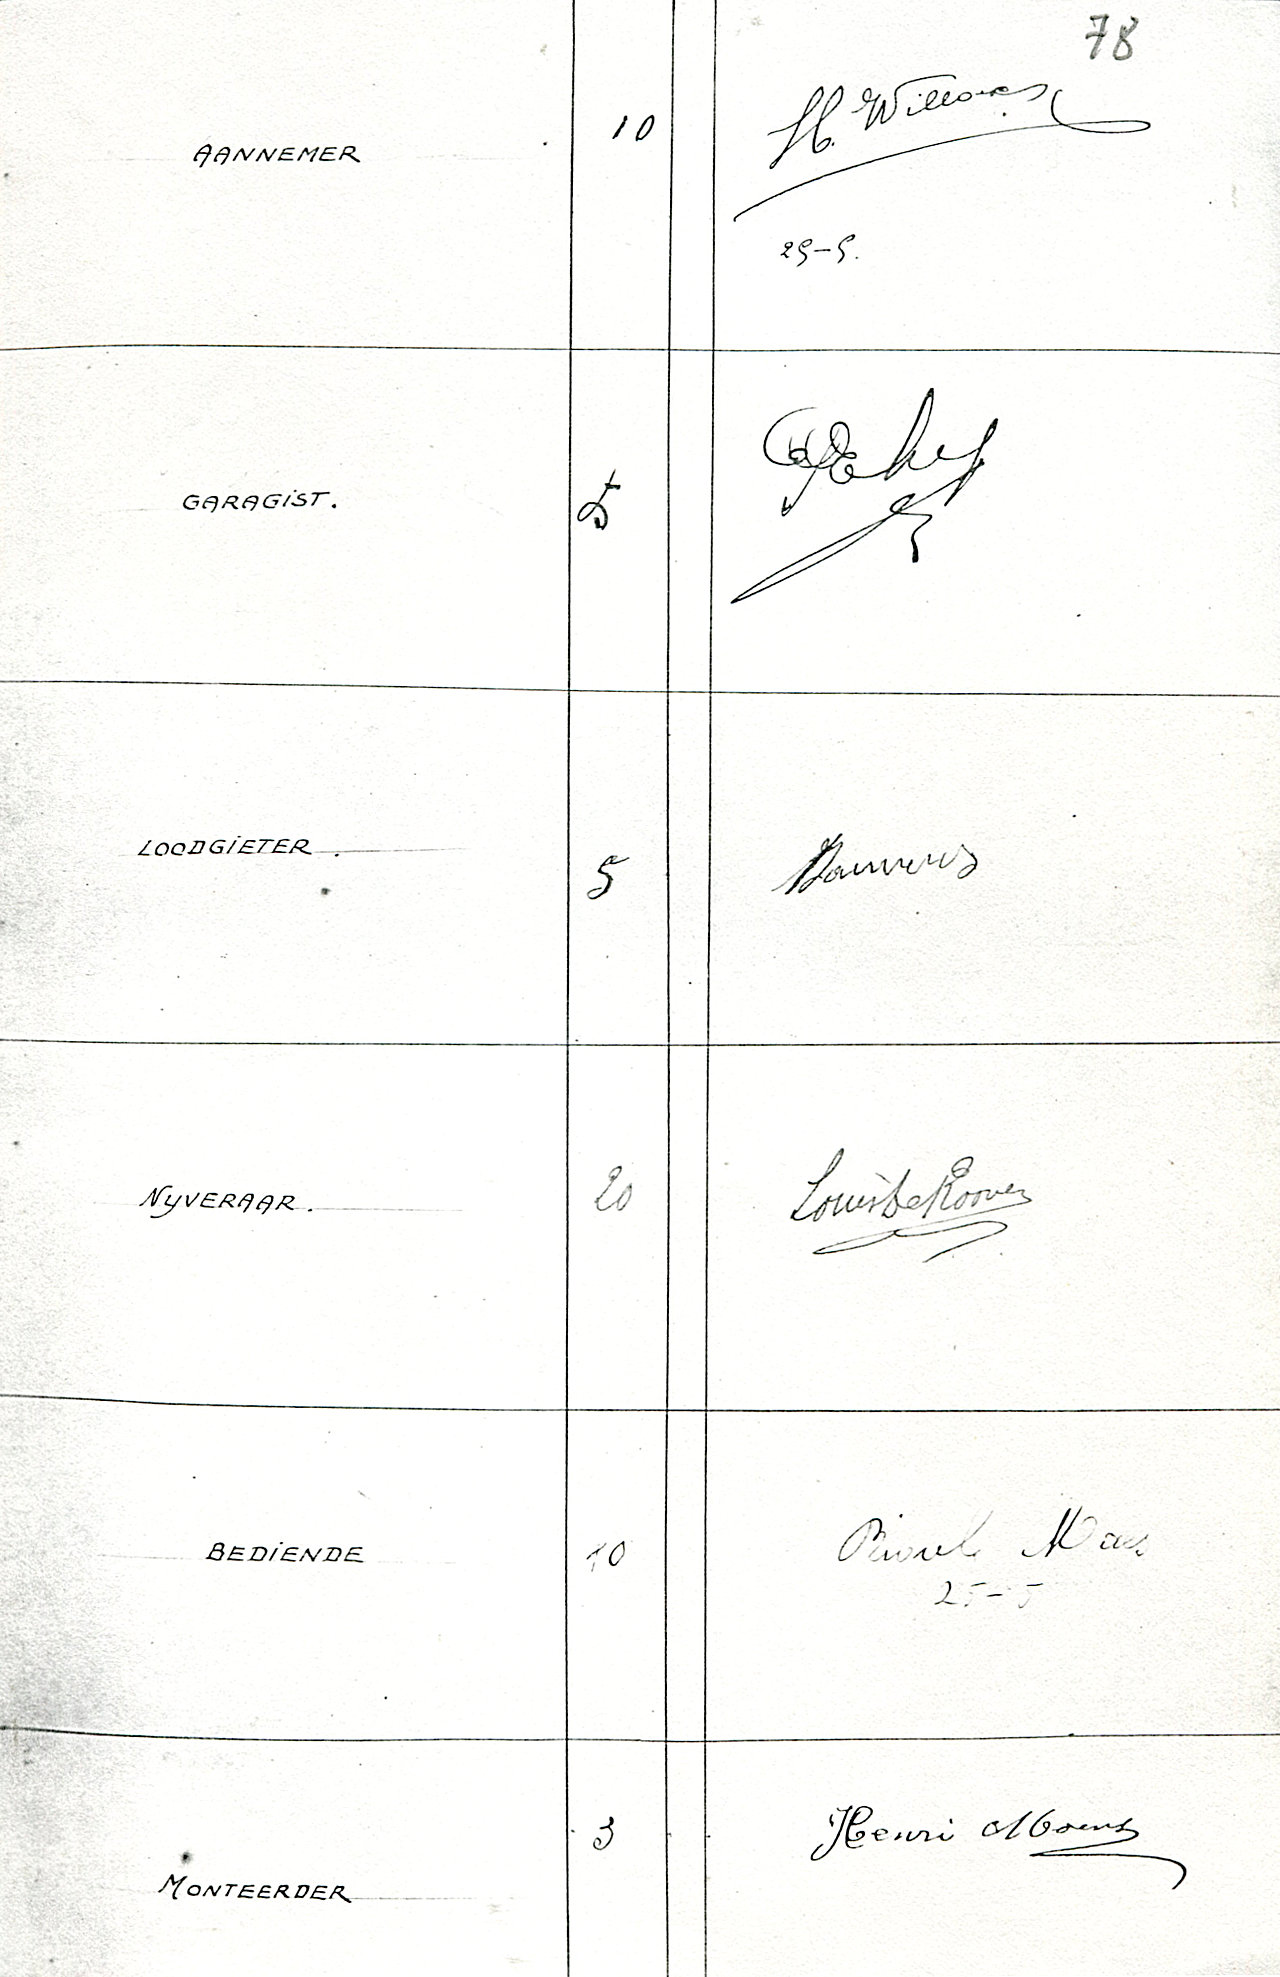 78
AANNEMER 10 H. Willems
25-5.
GARAGIST. 5
LOODGIETER. 5 Bauwens
NYVERAAR. 20 Louis De Roover
BEDIENDE 10 Raoul Maes
25-5
MONTEERDER 3 Henri Moens